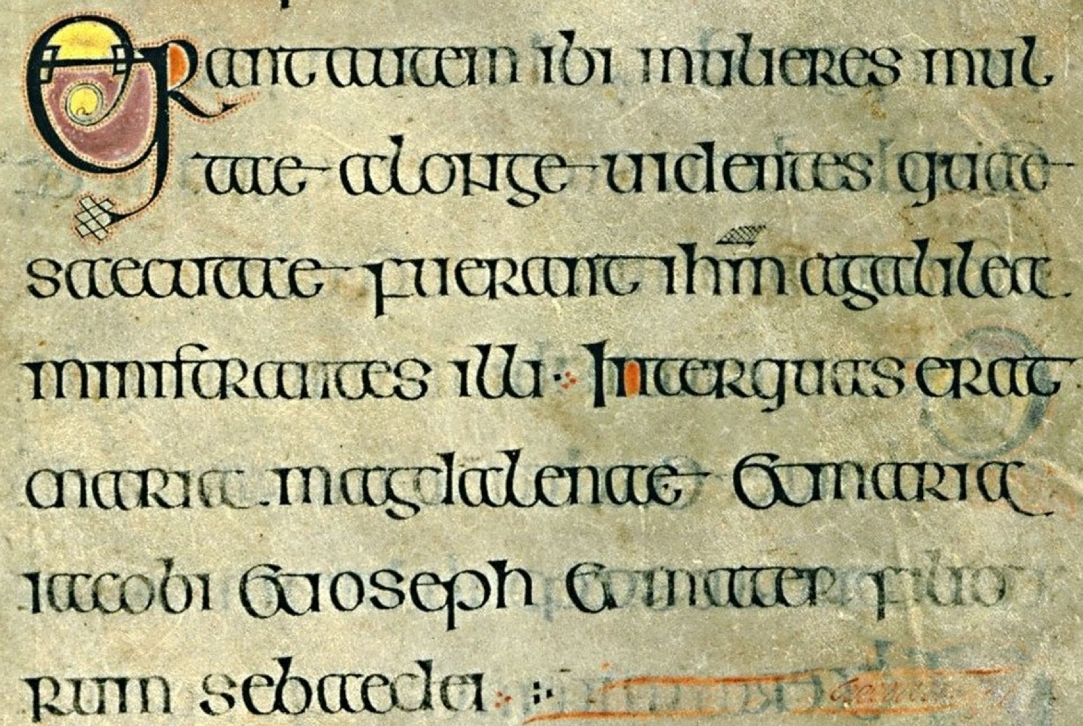 Erant autem ibi mulieres mul
tae alonge uidentes quae
saecutae fuerant ihm agalilea
ministrantes illi · Inter quas erat
maria magdalenae et maria
iacobi et ioseph et mater filio
rum sebaedei